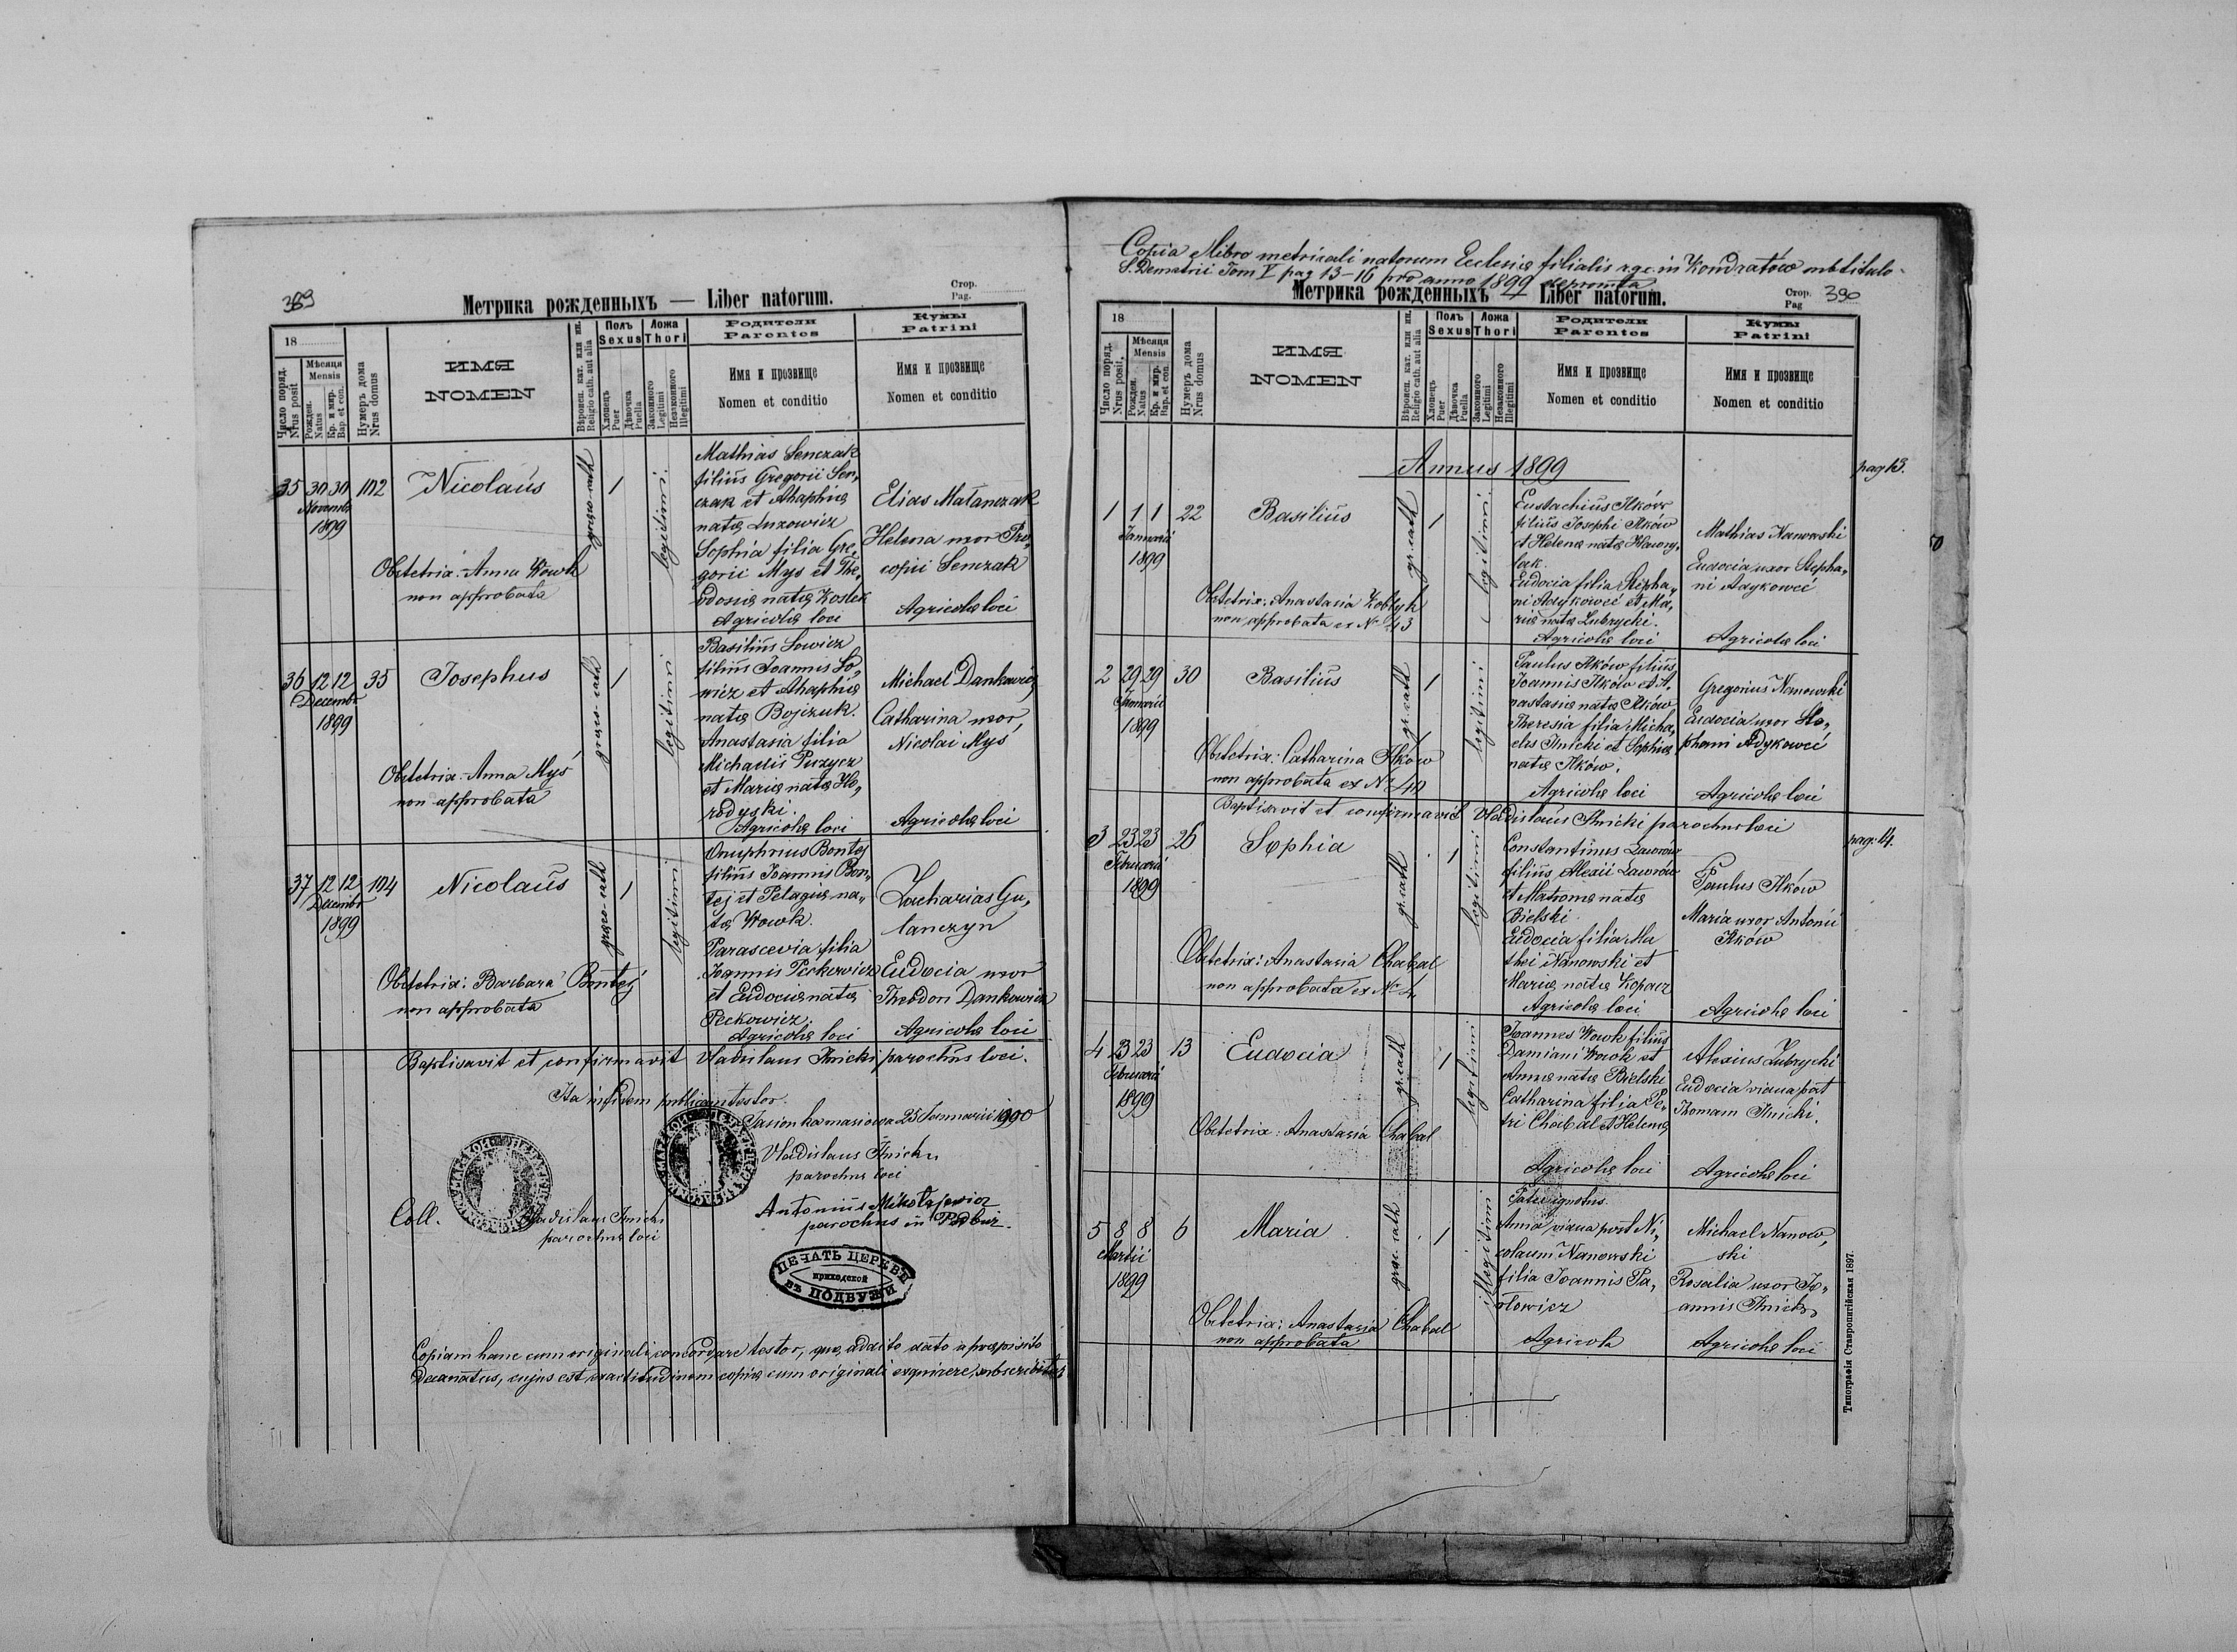 389
Метрика рожденныхъ — Liber natorum.
Стор.
Pag.
18
Число поряд.
Nrus posit
Мѣсяця
Mensis
Рожден.
Natus
Кр. и мѵр.
Bap. et con.
Нумеръ дома
Nrus domus
ИМЯ
NOMEN
Вѣроисп. кат. или ин.
Religio cath. aut alia
Полъ
Sexus
Хлопець
Puer
Дѣвочка
Puella
Ложа
Thori
Законного
Legitimi
Незаконного
Illegitimi
Родители
Parentes
Имя и прозвище
Nomen et conditio
Кумы
Patrini
Имя и прозвище
Nomen et conditio
35 30 30 102 Nicolaus
Novembr
1899
Obstetrix: Anna Wowk
non approbata
græco-cath
1
legitimi
Mathias Senczak
filius Gregorii Sen„
czak et Ahaphiæ
natæ Luzowicz
Sophia filia Gre„
gorii Mys et The„
odosiæ natæ Kostek
Agricolæ loci
Elias Małanczak
Helena uxor Pro„
copii Senczak
Agricolæ loci
36 12 12 35 Josephus
Decembr
1899
Obstetrix: Anna Myś
non approbata
græco-cath
1
legitimi
Basilius Sowicz
filius Joannis So„
wicz et Ahaphiæ
natæ Bojczuk.
Anastasia filia
Michaelis Puzycz
et Mariæ natæ Ho„
rodyski.
Agricolæ loci
Michael Dankowicz
Catharina uxor
Nicolai Myś
Agricolæ loci
37 12 12 104 Nicolaus
Decembr
1899
Obstetrix: Barbara Bontej
non approbata
græco-cath
1
legitimi
Onuphrius Bontej
filius Joannis Bon„
tej et Pelagiæ na„
tæ Wowk.
Parascevia filia
Joannis Peckowicz
et Eudociæ natæ
Peckowicz.
Agricolæ loci
Zacharias Gu„
lanczyn
Eudocia uxor
Theodori Dankowicz
Agricolæ loci
Baptisavit et confirmavit Vladislaus Ilnicki parochus loci.
Ita in fidem publicam testor.
Jasionka masiowa 25 Januarii 1900
Vladislaus Ilnicki
parochus loci
Coll. Vladislaus Ilnicki
parochus loci
Antonius Mikołajewicz
parochus in Podbuż.
ПЕЧАТЬ ЦЕРКВИ
приходской
въ ПОДБУЖИ
Copiam hanc cum originali concordare testor, quæ addito dato a præposito
decanatus, cujus est exactitudinem copiæ cum originali exquirere, subscribitur
Copia e libro metricali natorum Ecclesiæ filialis r.g.c. in Kondratów sub titulo
S. Demetrii Tom V pag 13-16 pro anno 1899 deprompta
Метрика рожденныхъ — Liber natorum.
Стор.
Pag
390
18
Число поряд.
Nrus posit,
Мѣсяця
Mensis
Рожден.
Natus
Кр. и мѵр.
Bap. et con.
Нумеръ дома
Nrus domus
ИМЯ
NOMEN
Вѣроисп. кат. или ин.
Religio cath. aut alia
Полъ
Sexus
Хлопець
Puer
Дѣвочка
Puella
Ложа
Thori
Законного
Legitimi
Незаконного
Illegitimi
Родители
Parentes
Имя и прозвище
Nomen et conditio
Кумы
Patrini
Имя и прозвище
Nomen et conditio
Annus 1899
pag 13.
1 1 1 22 Basilius
Januarii
1899
Obstetrix: Anastasia Kobryń
non approbata ex Nr 43
gr.cath
1
legitimi
Eustachius Ilków
filius Josephi Ilków
et Helenæ natæ Hawry„
lak.
Eudocia filia Stepha„
ni Adykowci et Ma„
riæ natæ Zubrycki.
Agricolæ loci
Mathias Nanowski
Eudocia uxor Stepha„
ni Adykowci
Agricolæ loci
50
2 29 29 30 Basilius
Januarii
1899
Obstetrix: Catharina Ilków
non approbata ex Nr 40
gr.cath
1
legitimi
Paulus Ilków filius
Joannis Ilków et A„
nastasiæ natæ Ilków
Theresia filia Micha„
elis Ilnicki et Sophiæ
natæ Ilków.
Agricolæ loci
Gregorius Nanowski
Eudocia uxor Ste„
phani Adykowci
Agricolæ loci
Baptisavit et confirmavit Vladislaus Ilnicki parochus loci
pag. 14.
3 23 23 26 Sophia
Februarii
1899
Obstetrix: Anastasia Chabal
non approbata ex Nr 4
gr.cath
1
legitimi
Constantinus Lawrów
filius Alexii Lawrów
et Matronæ natæ
Bielski
Eudocia filia Ma
thei Nanowski et
Mariæ natæ Kopacz
Agricolæ loci
Paulus Ilków
Maria uxor Antonii
Ilków
Agricolæ loci
4 23 23 13 Eudocia
Februarii
1899
Obstetrix: Anastasia Chabal
gr.cath
1
legitimi
Joannes Wowk filius
Damiani Wowk et
Annæ natæ Bielski
Catharina filia Pe„
tri Chabal et Helenæ
Agricolæ loci
Alexius Zubrycki
Eudocia vidua post
Thomam Ilnicki.
Agricolæ loci
5 8 8 6 Maria
Martii
1899
Obstetrix: Anastasia Chabal
non approbata
græc. cath
1
illegitimi
Pater ignotus.
Anna vidua post Ni„
colaum Nanowski
filia Joannis Pa„
włowicz
Agricola
Michael Nanow„
ski
Rosalia uxor Jo„
annis Ilnicki
Agricolæ loci
Типографія Ставропигійская 1897.